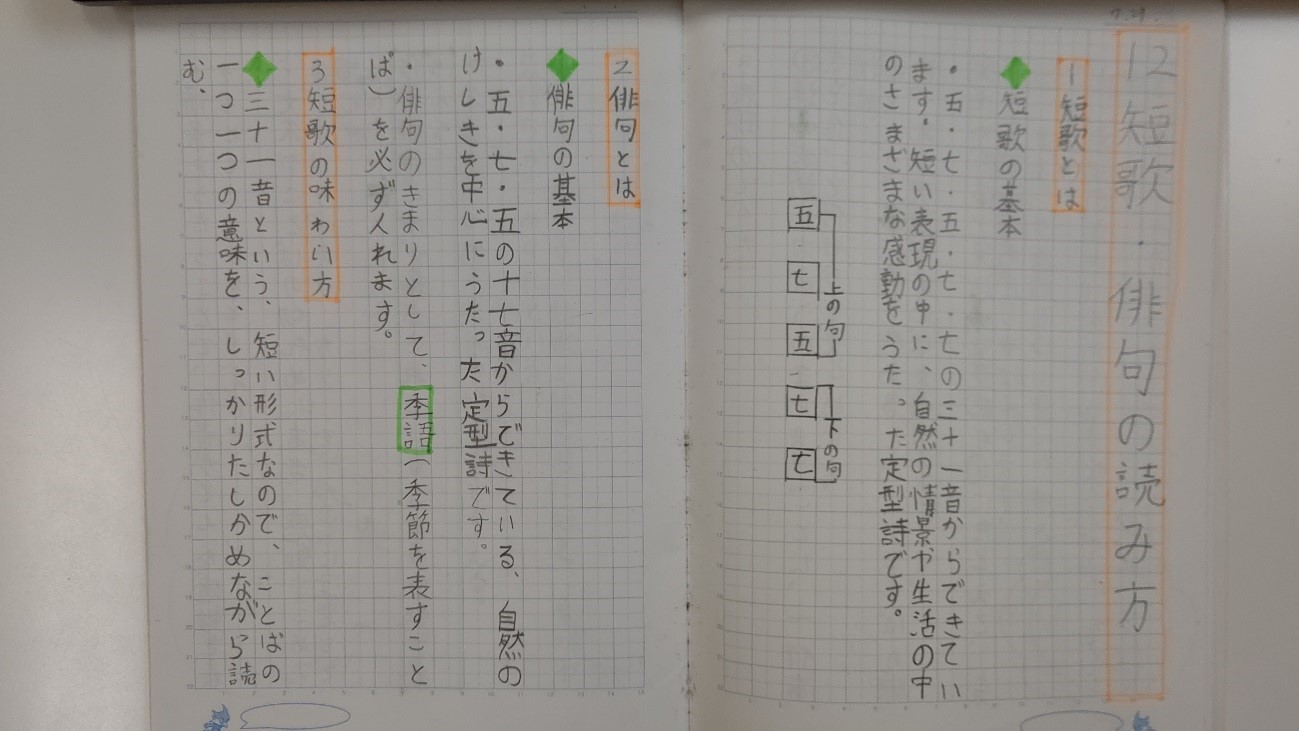 12短歌・俳句の読み方
1短歌とは
短歌の基本
・五・七・五・七・七の三十一音からできてい
ます。短い表現の中に、自然の情景や生活の中
のさまざまな感動をうたった定型詩です。
上の句
下の句
五
七
五
七
七
2俳句とは
俳句の基本
・五・七・五の十七音からできている、自然の
けしきを中心にうたった定型詩です。
・俳句のきまりとして、季語(季節を表すこと
ば)を必ず入れます。
3短歌の味わい方
三十一音という、短い形式なので、ことばの
一つ一つの意味を、しっかりたしかめながら読
む、